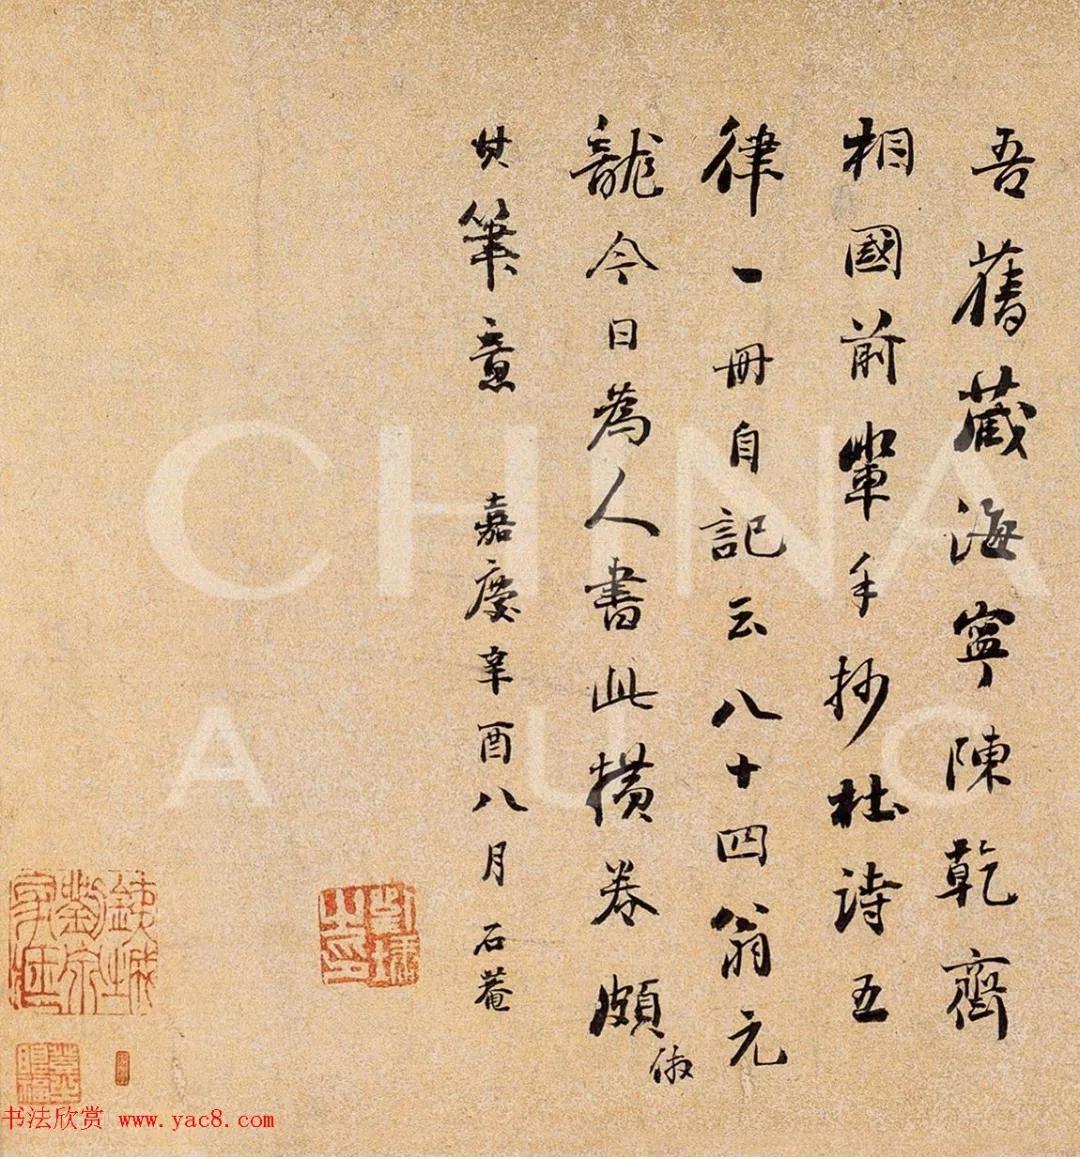 吾舊藏海寧陳乾齋
相國前輩手抄杜詩五
律一冊自記云八十四翁元
龍今日為人書此橫卷頗倣
其筆意 嘉慶辛酉八月 石菴
劉墉之印
CHINA
A U C
书法欣赏 www.yac8.com